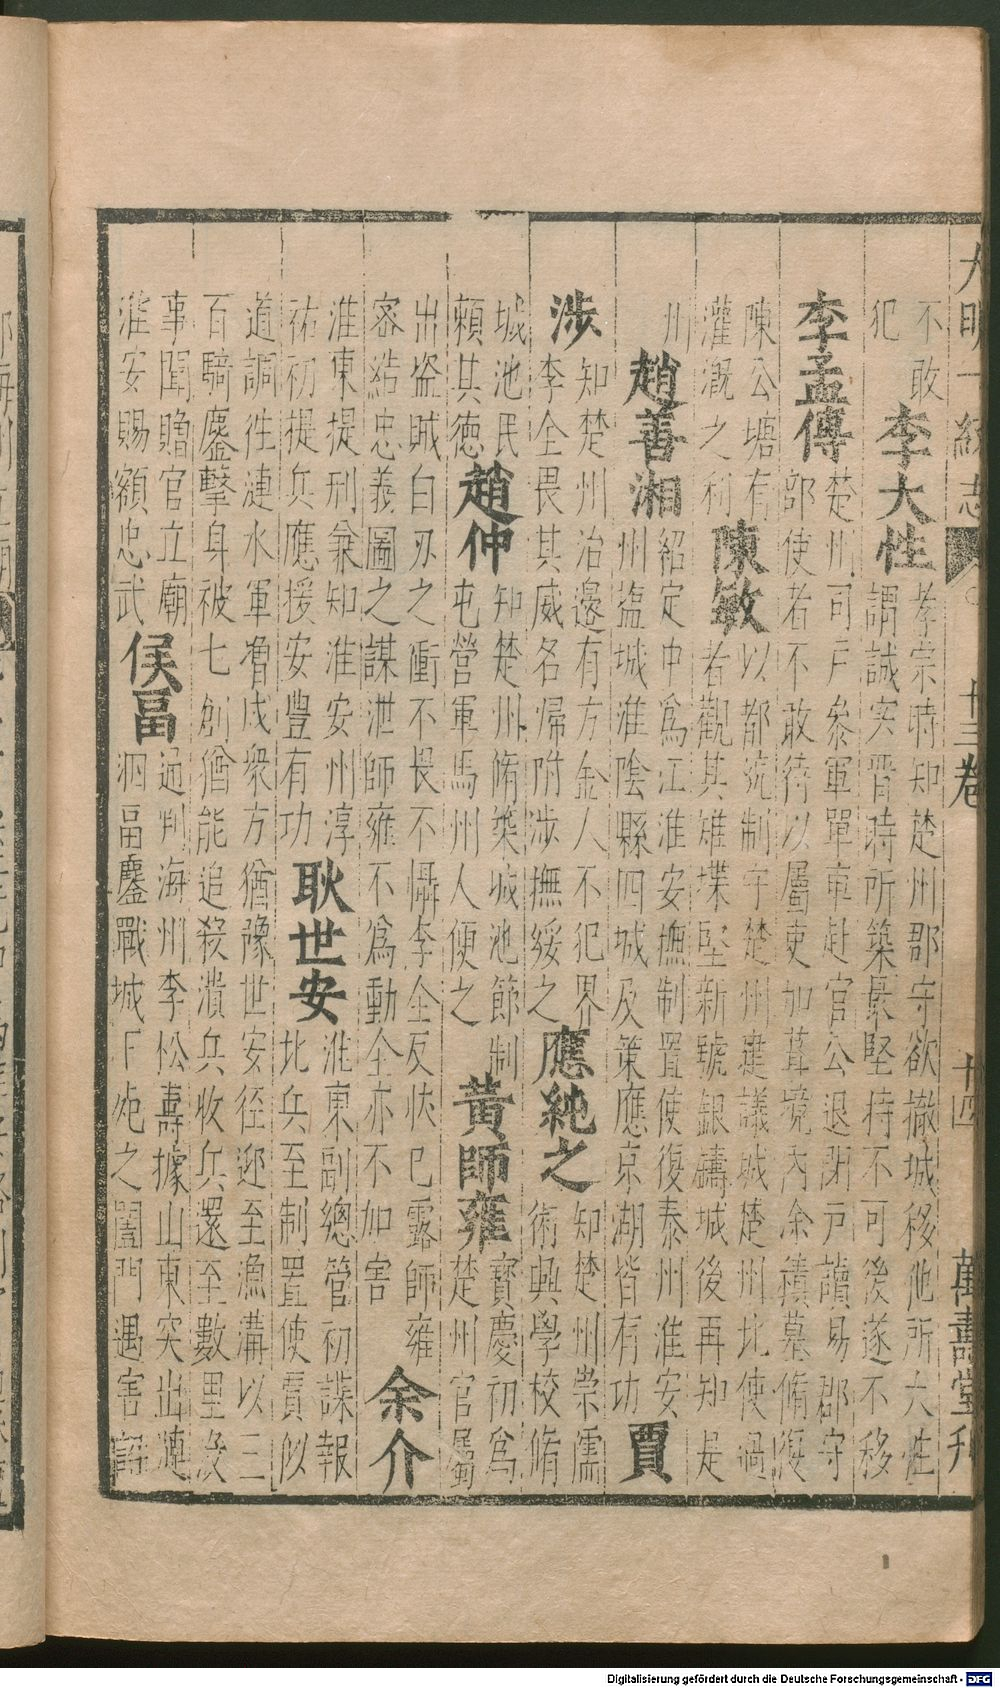 大明一統志 十三卷 十四 萬壽堂刊
不敢
犯
李大性
孝宗時知楚州郡守欲撤城移他所大性
謂誠實晉時所築最堅持不可後遂不移
李孟傳
楚州司戶參軍單車赴官公退閉戶讀易郡守
部使者不敢待以屬吏加葺境內余積墓脩復
陳公塘有
灌溉之利
陳敏
以都統制守楚州建議城楚州北使過
者觀其雉堞堅新號銀鑄城後再知是
州
趙善湘
紹定中為江淮安撫制置使復泰州淮安
州鹽城淮陰縣四城及策應京湖皆有功
賈
涉
知楚州治邊有方金人不犯界
李全畏其威名歸附涉撫綏之
應純之
知楚州崇儒
術興學校脩
城池民
賴其德
趙仲
知楚州脩築城池節制
屯營軍馬州人便之
黃師雍
寶慶初為
楚州官屬
出盜賊白刃之衝不畏不懾李全反怏已露師雍
密結忠義圖之謀泄師雍不為動全亦不加害
余介
淮東提刑兼知淮安州淳
祐初提兵應援安豐有功
耿世安
淮東副總管初諜報
北兵至制置使賈似
道調往漣水軍曹戍眾方猶豫世安徑迎至漁溝以三
百騎鏖擊身被七創猶能追殺潰兵收兵還至數里沒
事聞贈官立廟
淮安賜額忠武
侯畐
通判海州李松壽據山東突出漣
泗畐鏖戰城下死之闔門遇害詔
Digitalisierung gefördert durch die Deutsche Forschungsgemeinschaft - DFG